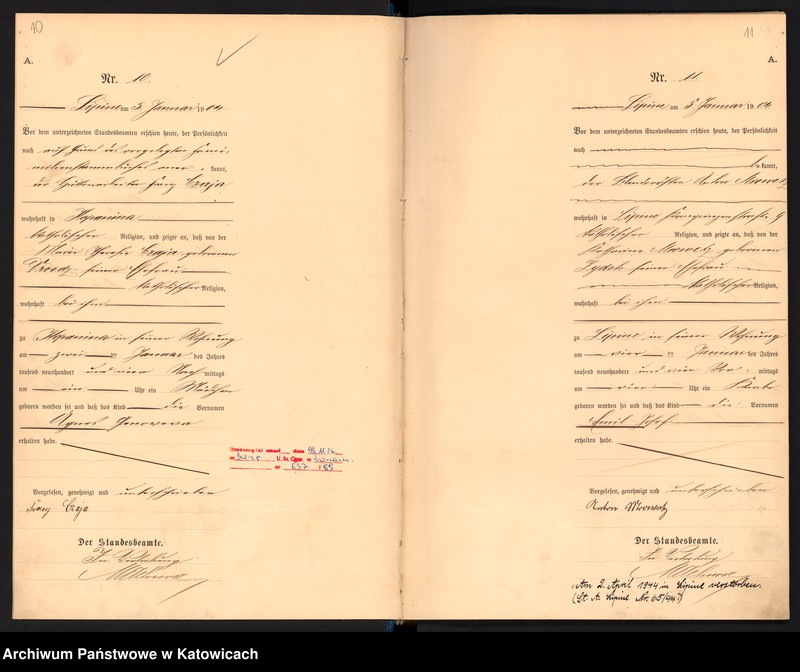 10
A.
Nr. 10.
Lipine am 5. Januar 1904
Vor dem unterzeichneten Standesbeamten erschien heute, der Persönlichkeit
nach auf Grund des vorgelegten Fami-
kannt,
der Hüttenarbeiter Franz Czaja
wohnhaft in Kopanina
katholischer Religion, und zeigte an, daß von der
Maria Czaja geborenen
seiner Ehefrau
katholischer Religion,
wohnhaft bei ihm
zu Kopanina in seiner Wohnung
am zwei ten Januar des Jahres
tausend neunhundert und vier Nach mittags
um ein Uhr ein Mädchen
geboren worden sei und daß das Kind die Vornamen
Agnes Genoveva
erhalten habe.
dnia 25.11.16
U. St. Cyw. w
nr 637 / 85
Vorgelesen, genehmigt und unterschrieben
Franz Czaja
Der Standesbeamte.
In Vertretung
11
A.
Nr. 11.
Lipine am 5. Januar 1904
Vor dem unterzeichneten Standesbeamten erschien heute, der Persönlichkeit
nach
be kannt,
der Anton
wohnhaft in Lipine 9
katholischer Religion, und zeigte an, daß von der
Katharina geborenen
seiner Ehefrau
katholischer Religion,
wohnhaft bei ihm
zu Lipine in seiner Wohnung
am vier ten Januar des Jahres
tausend neunhundert und vier Vor mittags
um vier Uhr ein Knabe
geboren worden sei und daß das Kind die Vornamen
Emil Josef
erhalten habe.
Vorgelesen, genehmigt und unterschrieben
Anton
Der Standesbeamte.
In Vertretung
Am 2. April 1944 in Lipine verstorben.
(St. A. Lipine Nr. 65/44.)
Archiwum Państwowe w Katowicach